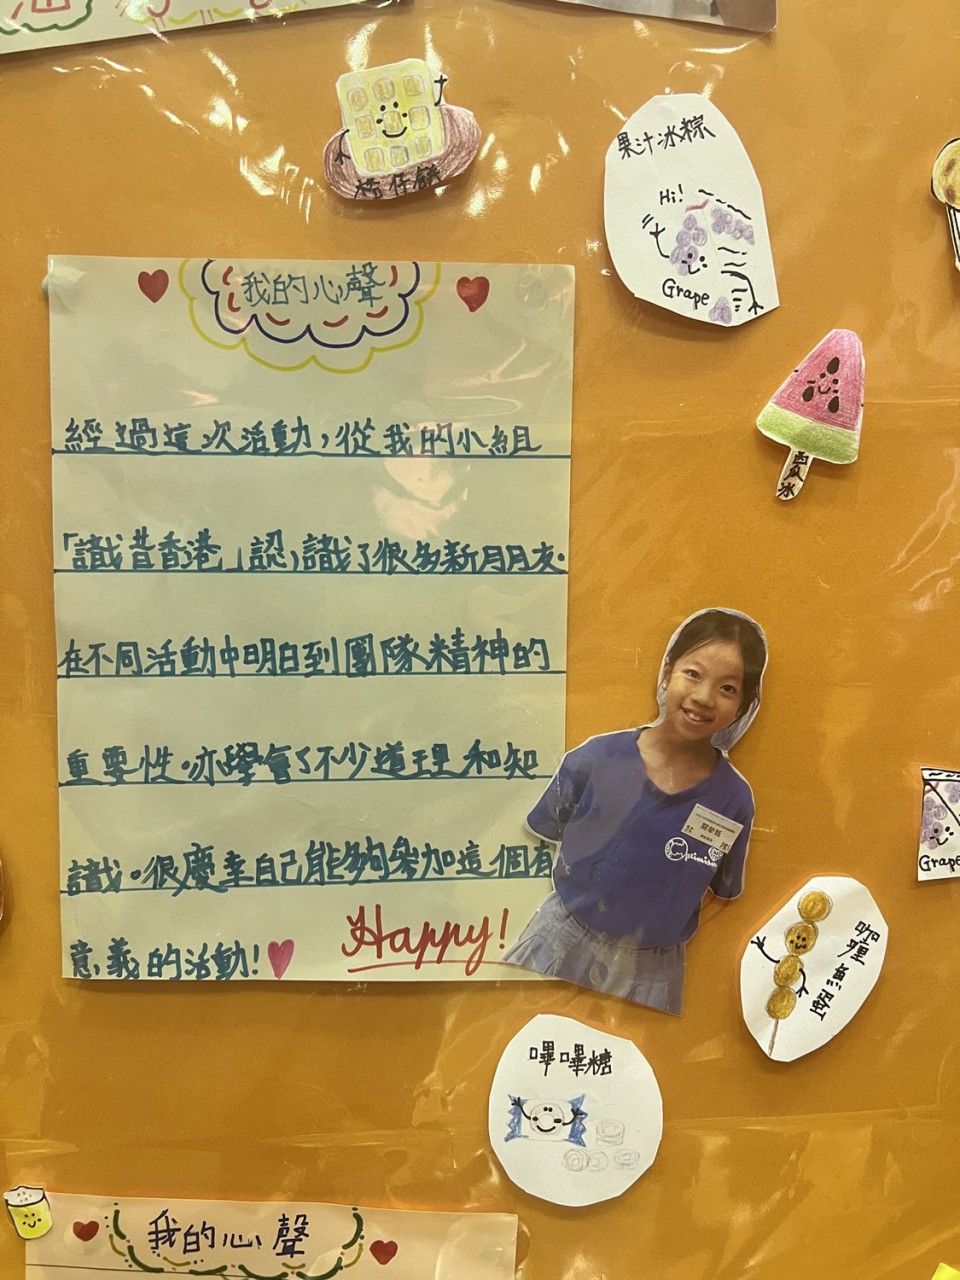 格仔餅
果汁冰粽
Hi!
Grape
我的心聲
經過這次活動，從我的小組
「識昔香港」認識了很多新朋友。
在不同活動中明白到團隊精神的
重要性。亦學會了不少道理和知
識。很慶幸自己能夠參加這個有
意義的活動!
Happy!
西瓜冰
Optimism
Grape
咖喱魚蛋
嗶嗶糖
我的心聲